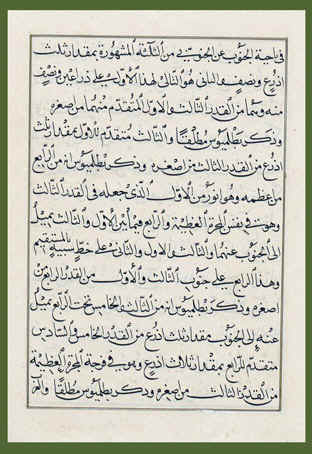 في ناحية الجنوب عن الجنوبي من الثلثة المشهورة بمقدار ثلث
اذرع ونصف والثاني هو التالي لهذا الاول على ذراعين ونصف
منه وهما من القدر الثالث والاول المتقدم منهما من صغره
وذكر بطلميوس مطلقا والثالث متقدم للاول بمقدار ثلث
اذرع من القدر الثالث من اصغره وذكر بطلميوس انه من الرابع
من اعظمه وهو انور من الاول الذى جعله فى القدر الثالث
وهو في نفس المجرة العظيمة والرابع فيما بين الاول والثالث يميل
الى الجنوب عنهما والثالث والاول والثاني على خط شبيه بالمستقيم
وهذا الرابع على جنوب الثالث والاول من القدر الرابع من
اصغره وذكر بطلميوس انه من الثالث والخامس تحت الرابع يميل
عنه الى الجنوب مقدار ثلث اذرع من القدر الخامس والسادس
متقدم للرابع بمقدار ثلاث اذرع وهو في وجه المجرة العظيمة
من القدر الثالث من صغره وذكر بطلميوس مطلقا